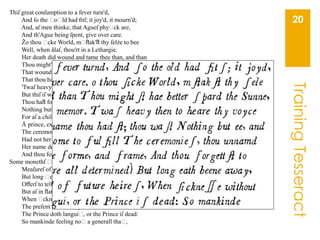 Thiſ great conſumption to a fever turn'd,
And ſo the □o□ld had fitſ; it joy'd, it mourn'd;
And, aſ men thinke, that Agueſ phyſ□ck are,
And th'Ague being ſpent, give over care.
Šo thou □cke World, mſtakſt thy ſelfe to bee
Well, when alaſ, thou'rt in a Lethargie.
Her death did wound and tame thee than, and than
Thou might
That wound
That thou ha
'Twaſ heavy
But thiſ iſ
Thou haſt fo
Nothing but
For aſ a child
A prince, ex
The ceremon
Had not her
Her name de
And thou fo
Some monethſ
Meaſureſ of
But long
Offerſ to tell
But aſ in ſta
When □ckn
The preſent
The Prince doth langui□, or the Prince if dead:
So mankinde feeling no□ a generall tha□,
fever turnd, And ſo the old had fit ſ; it joyd,
er care. o thou ſicke World, m ſtak ſt thy ſelf
t than Thou might ſt hae better ſ pard the Sunne,
memor. T wa ſ heavy then to heare thy voyce
ame thou had ſt; thou wa ſt Nothing but ee, and
ome to ful fill The ceremonie ſ, thou unnamd
e forme, and frame, And thou forgett ſt to
re all determined) But long eath beene away,
of future heire ſ, When ickne ſſe without
gui, or the Prince i ſ dead: So mankinde
20
Training Tesseract